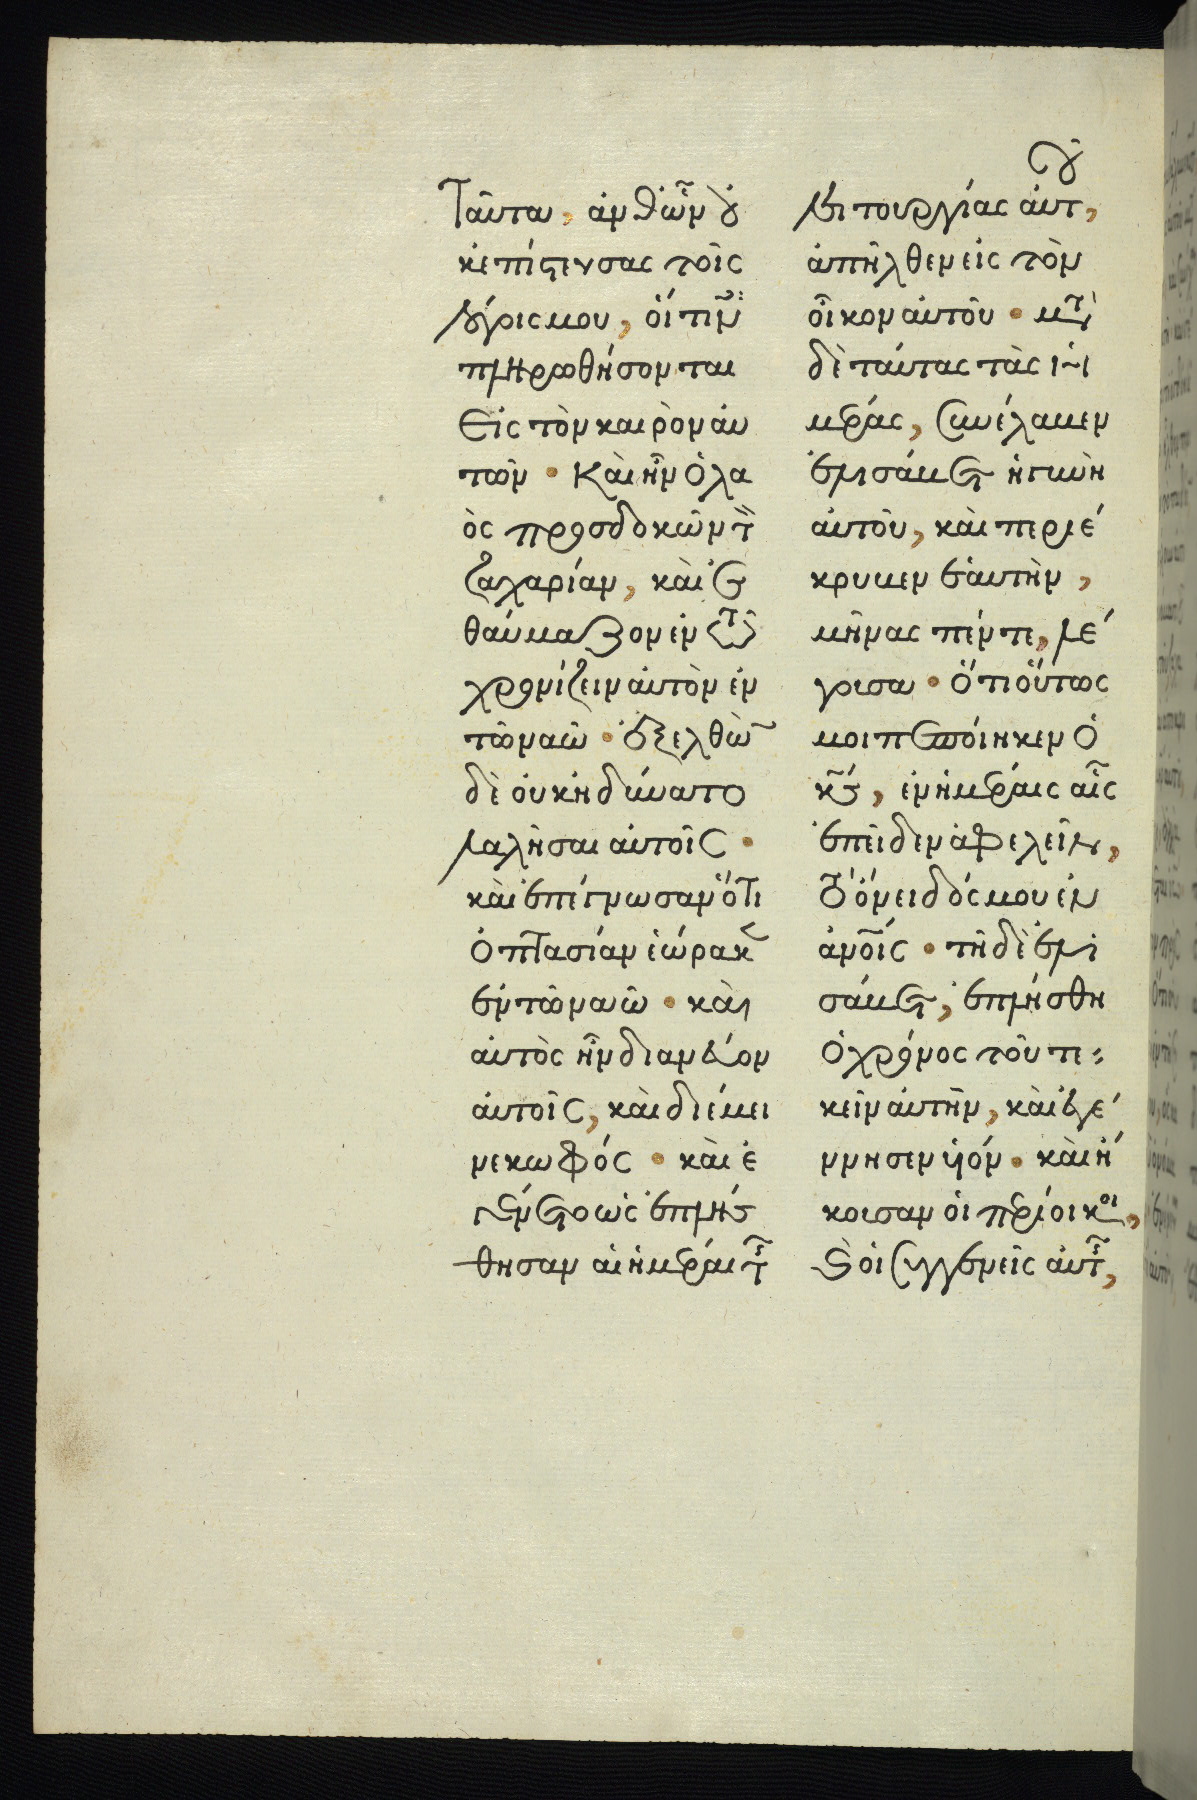 ταῦτα, ἀνθῶν οὐ
κἐπίστευσας τοῖς
λόγοις μου, οἵτιν
πληρωθήσονται
Εἰς τὸν καιρὸν αὐ
τῶν · Καὶ ἦν ὁ λα
ὸς προσδοκῶν τ
ζαχαρίαν, καὶ ἐ
θαύμαζον ἐν τῶ
χρονίζειν αὐτὸν ἐν
τῶ ναῶ · ἐξελθὼ
δὲ οὐκ ἠδύνατο
λαλῆσαι αὐτοῖς ·
καὶ ἐπέγνωσαν ὅτι
ὀπτασίαν ἑώρακ
ἐν τῶ ναῶ · καὶ
αὐτὸς ἦν διανεύον
αὐτοῖς, καὶ διέμει
νε κωφός · καὶ ἐ
γένετο ὡς ἐπλήσ
θησαν αἱ ἡμέραι τ
λειτουργίας αὐτ,
ἀπῆλθεν εἰς τὸν
οἶκον αὐτοῦ · μετ
δὲ ταύτας τὰς ἡ
μέρας, συνέλαβεν
ἐλισάβετ ἡ γυνὴ
αὐτοῦ, καὶ περιέ
κρυβεν ἑαυτὴν,
μῆνας πέντε, λέ
γουσα · ὅτι οὕτως
μοι πεποίηκεν ὁ
κς, ἐν ἡμέραις αἷς
ἐπεῖδεν ἀφελεῖν,
τὸ ὄνειδός μου ἐν
ἀνοις · τῆ δὲ ἐλι
σάβετ, ἐπλήσθη
ὁ χρόνος τοῦ τε
κεῖν αὐτὴν, καὶ ἐγέ
ννησεν υἱόν · καὶ ἤ
κουσαν οἱ περίοικοι,
κ οἱ συγγενεῖς αὐτ,